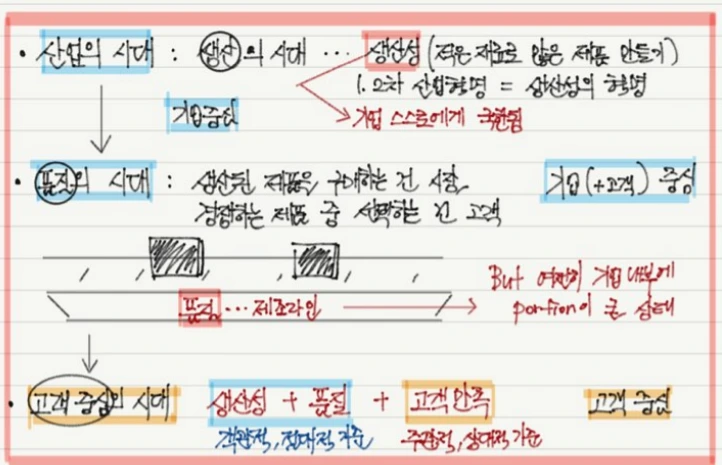 • 산업의 시대 : 생산의 시대 … 생산성 (적은 재료로 많은 제품 만들기)
1, 2차 산업혁명 = 생산성의 혁명
기업중심
기업 스스로에게 국한됨
• 품질의 시대 : 생산된 제품을 구매하는 건 시장, 기업(+고객) 중심
경쟁하는 제품 중 선택하는 건 고객
But 여전히 기업 내부에
품질 … 제조라인 portion이 큰 상태
• 고객 중심의 시대 생산성 + 품질 + 고객만족 고객 중심
객관적, 절대적 기준 주관적, 상대적 기준